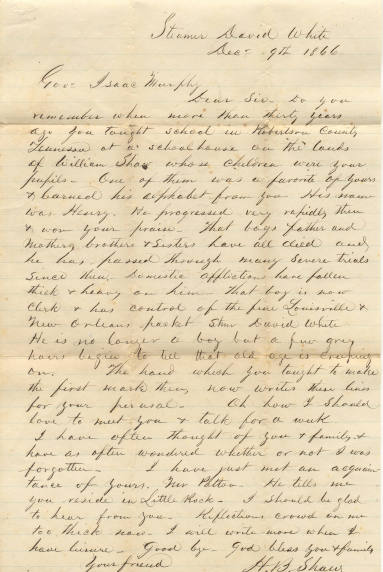 Steamer David White
Dec 9th 1866
Gov. Isaac Murphy
Dear Sir Do you
remember when more than thirty years
ago you taught school in Robertson County
Tennessee at a schoolhouse on the lands
of William Shaw whose children were your
pupils - One of them was a favorite of yours
& learned his alphabet from you His name
was Henry. He progressed very rapidly then
& won your praise - That boys father and
Mother, brothers & Sisters have all died and
he has passed through many severe trials
Since then. Domestic afflictions have fallen
thick & heavy on him - That boy is now
Clerk & has control of the fine Louisville &
New Orleans packet Stmr David White
He is no longer a boy but a few grey
hairs begin to tell that old age is creeping
on. The hand which you taught to make
the first mark then, now writes these lines
for your perusal - Oh how I Should
love to meet you & talk for a week
I have often thought of you & family &
have as often wondered whether or not I was
forgotten - I have just met an acquain
tance of yours, Patton - He tells me
you reside in Little Rock - I should be glad
to hear from you - Reflections crowd on me
too thick now. I will write more when I
have leisure - Good bye - God bless you & family
Your friend H. B. Shaw